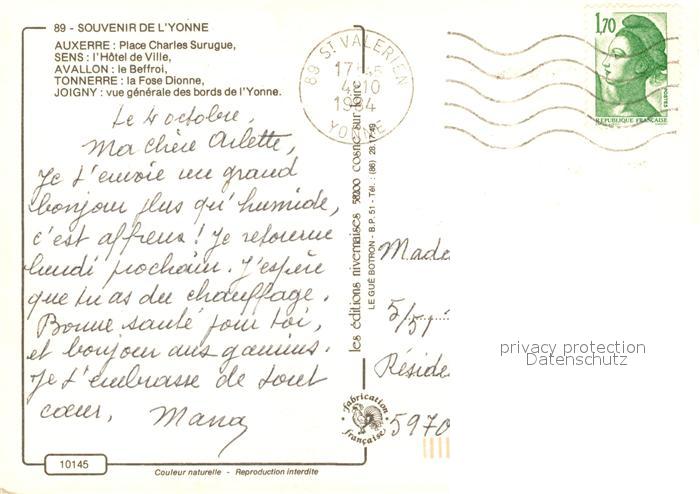 89 - SOUVENIR DE L'YONNE
AUXERRE : Place Charles Surugue,
SENS : l'Hôtel de Ville,
AVALLON : le Beffroi,
TONNERRE : la Fose Dionne,
JOIGNY : vue générale des bords de l'Yonne.
Le 4 octobre,
Ma chère Arlette,
Je t'envoie un grand
bonjour plus qu'humide,
c'est affreux ! Je retourne
lundi prochain. J'espère
que tu as du chauffage.
Bonne santé pour toi,
et bonjour aux gamins.
Je t'embrasse de tout
cœur,
10145
Couleur naturelle - Reproduction interdite
les éditions nivernaises 5800 cosne sur loire
LE GUÉ BOTRON - B.P. 51 - Tél. : (86) 28.17.49
Fabrication Française
89 ST VALERIEN
4-10
1984
YONNE
1,70
POSTES
REPUBLIQUE FRANÇAISE
Made
5/51
Réside
5970
privacy protection
Datenschutz